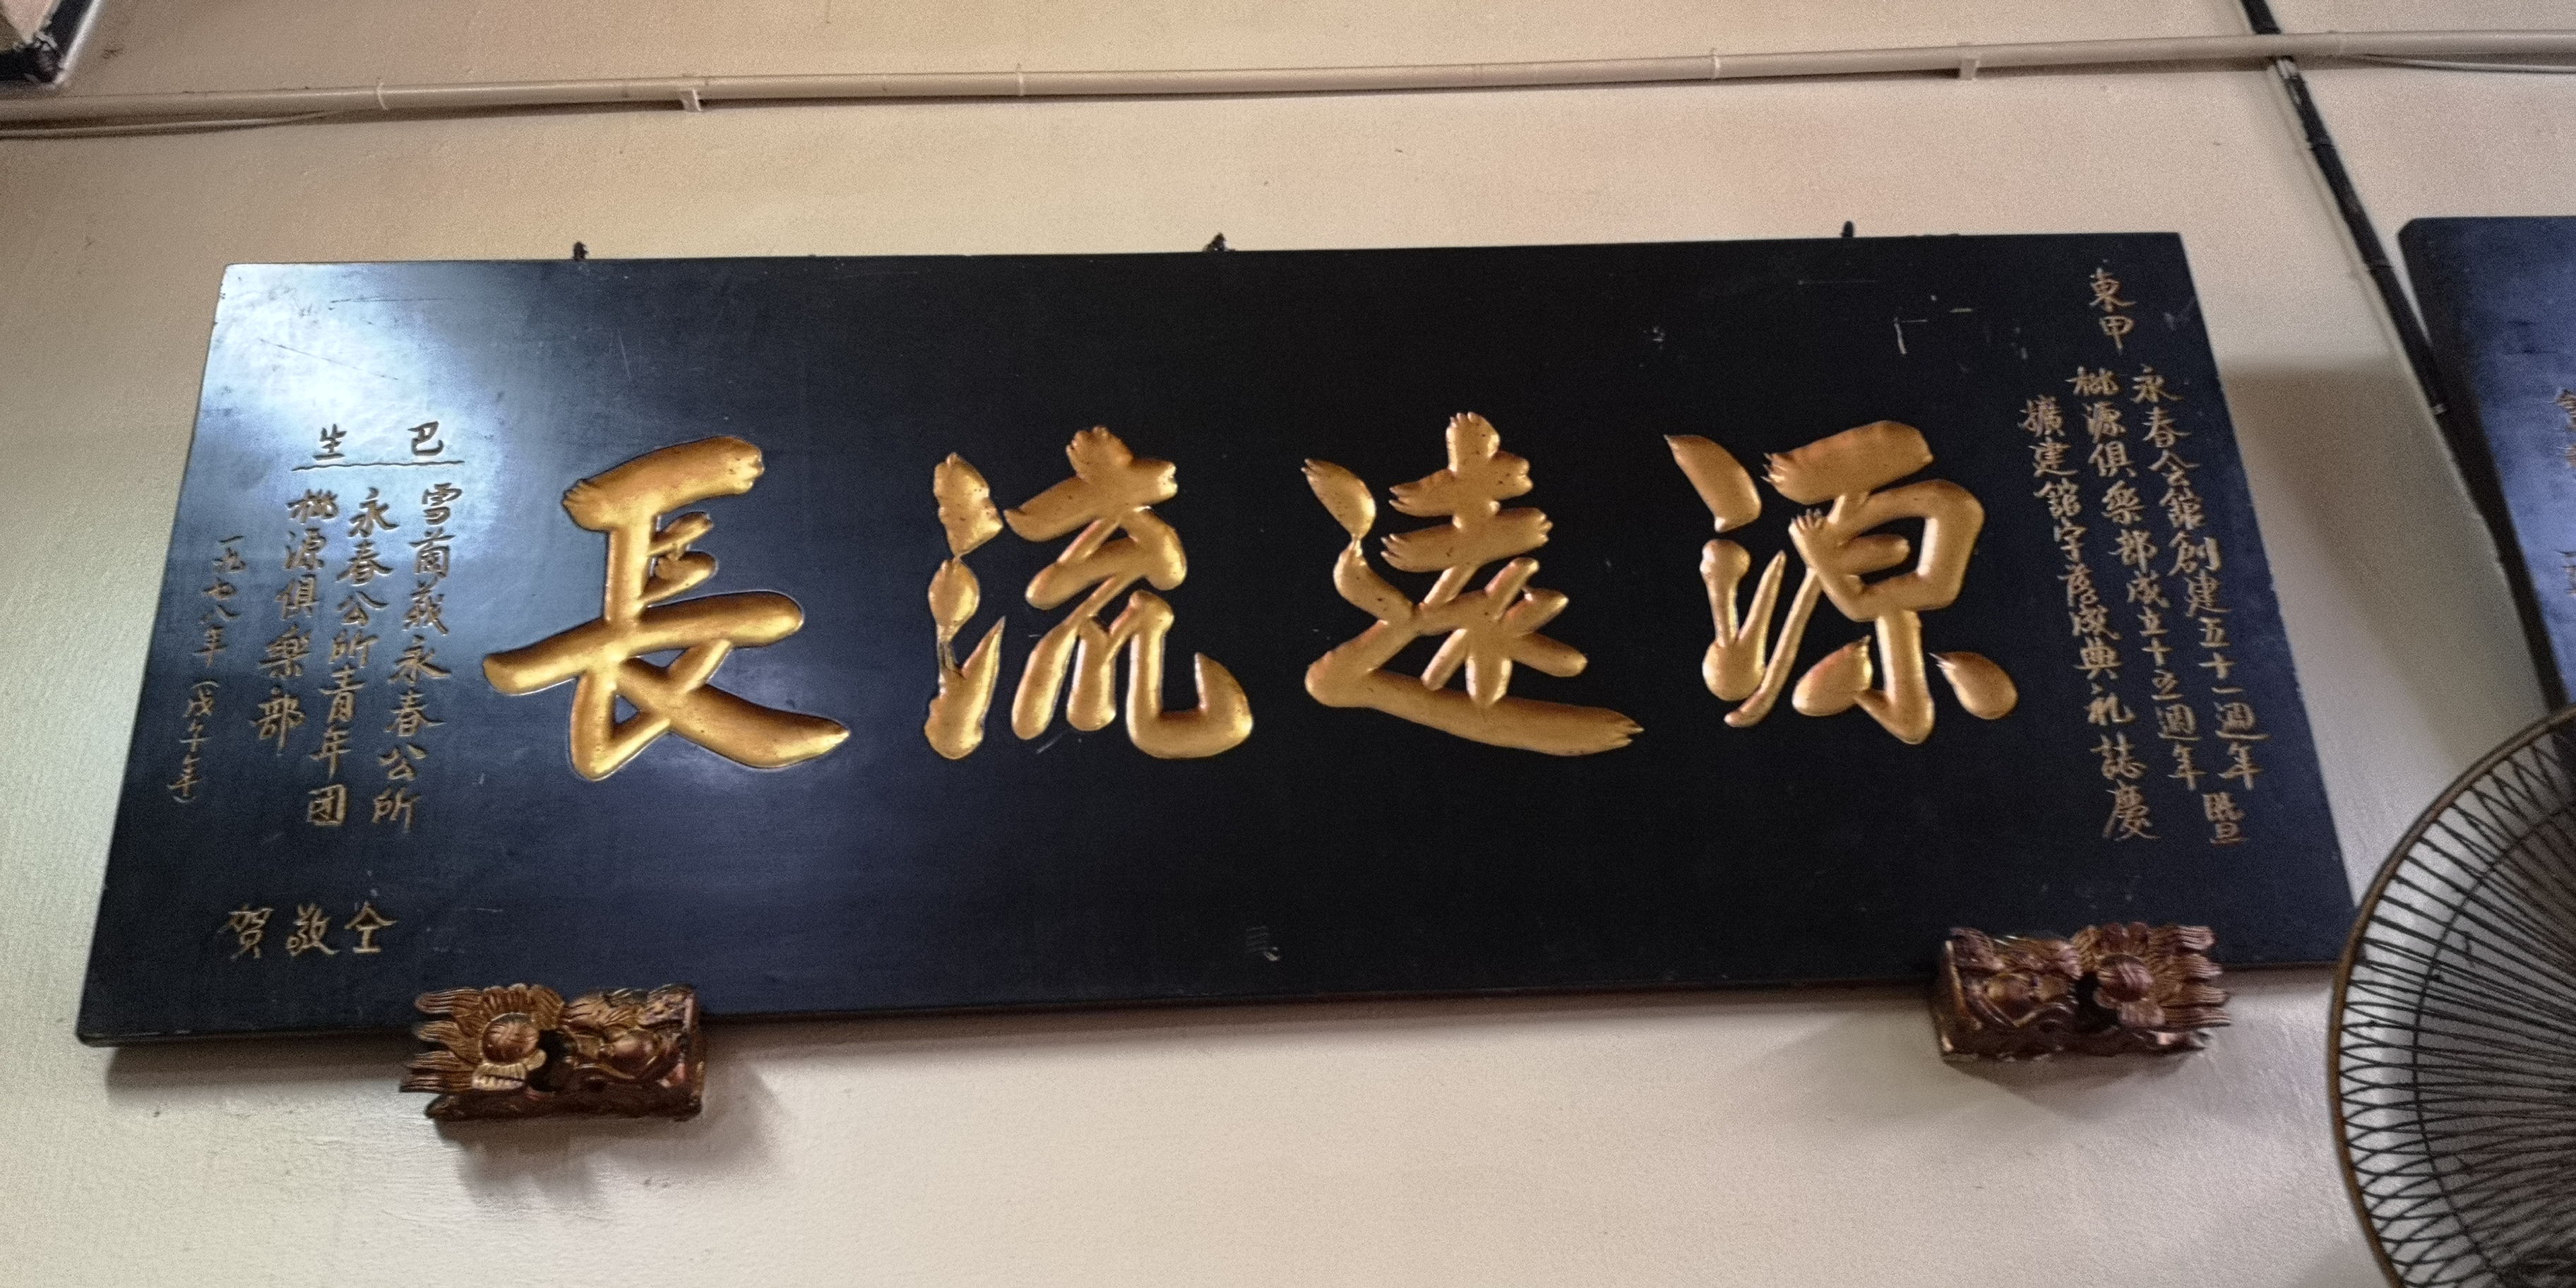 東甲
永春会館創建五十一週年暨
桃源俱樂部成立十五週年
擴建館宇落成典礼誌慶
源遠流長
巴生
雪蘭莪永春公所
永春公所青年团
桃源俱樂部
一九七八年(戊午年)
仝敬贺